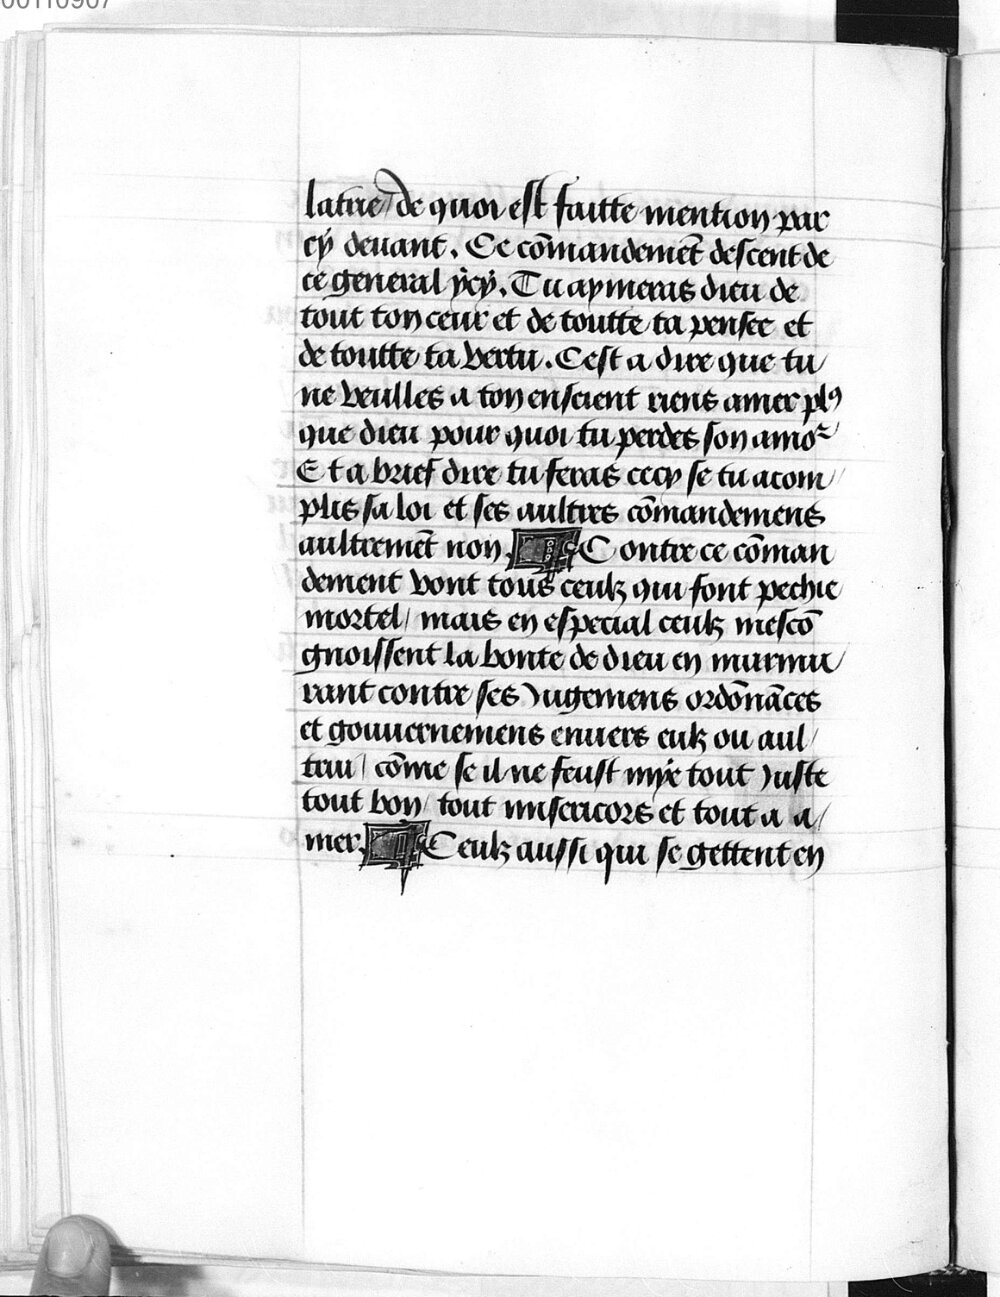 00110907
latrie / de quoi est faitte mention par
cÿ deuant . Ce cōmandemēt descent de
ce general ÿcÿ . Tu aymeras dieu de
tout ton ceur et de toutte ta pensee et
de toutte ta vertu . Cest a dire que tu
ne veulles a ton enscient riens amer plꝰ
que dieu pour quoi tu perdes son amoᷣ
Et a brief dire tu feras cecy se tu acom
plis sa loi et ses aultres cōmandemens
aultremēt non . Contre ce cōman
dement vont tous ceulz qui font pechie
mortel / mais en especial ceulz mescō
gnoissent la bonte de dieu en murmu
rant contre ses Jugemens ordōnāces
et gouuernemens enuers eulz ou aul
trui / cōme se il ne feust mÿe tout Juste
tout bon / tout misericors et tout a a
mer . Ceulz aussi qui se gettent en